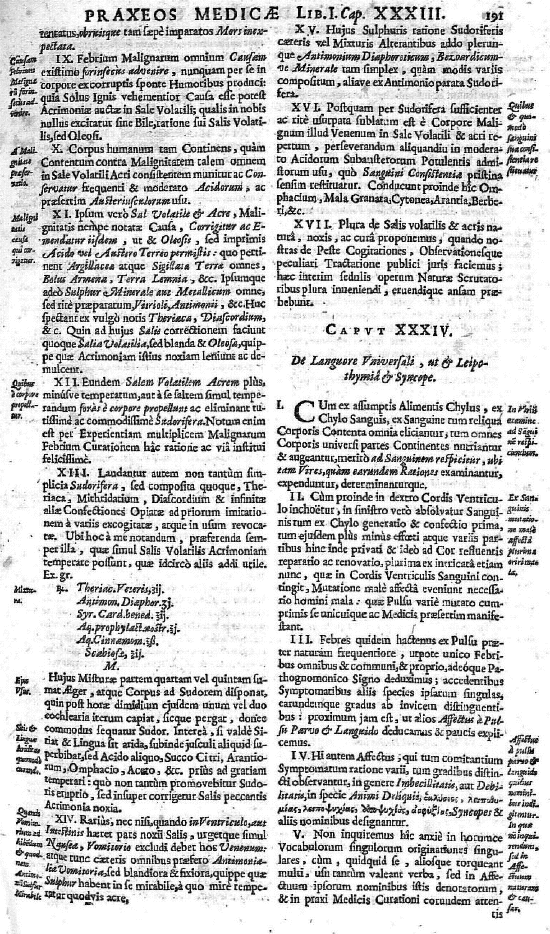 PRAXEOS MEDICÆ LIB. I. Cap. XXXIII. 191
tentatus, obruitque tam sæpè imparatos Mors inex-
pectata.
IX. Febrium Malignarum omnium Causam
existimo forinsecùs advenire, nunquam per se in
corpore ex corruptis sponte Humoribus produci:
quia Solus Ignis vehementior Causa esse potest
Acrimoniæ auctæ in Sale Volatili, qualis in nobis
nullus excitatur sine Bile, ratione sui Salis Volati-
lis, sed Oleosi.
X. Corpus humanum tam Continens, quàm
Contentum contra Malignitatem talem omnem
in Sale Volatili Acri consistentem munitur ac Con-
servatur frequenti & moderato Acidorum, ac
præsertim Austeriusculorum usu.
XI. Ipsum verò Sal Volatile & Acre, Mali-
gnitatis nempe notatæ Causa, Corrigitur ac E-
mendatur iisdem, ut & Oleosis, sed imprimis
Acido vel Austero Terreo permistis: quo perti-
nent Argillacea atque Sigillata Terræ omnes,
Bolus Armena, Terra Lemnia, &c. Ipsumque
adeò Sulphur è Minerale aut Metallicum omne,
sed ritè præparatum, Vitrioli, Antimonii, &c. Huc
spectant ex vulgò notis Theriaca, Diascordium,
&c. Quin ad hujus Salis correctionem faciunt
quoque Salia Volatilia, sed blanda & Oleosa, quip-
pe quæ Acrimoniam istius noxiam leniunt ac de-
mulcent.
XII. Eundem Salem Volatilem Acrem plùs,
minusve temperatum, aut è saltem simul tempe-
randum foràs è corpore propellunt ac eliminant tu-
tissimè ac commodissimè Sudorifera. Notum enim
est per Experientiam multiplicem Malignarum
Febrium Curationem hâc ratione ac viâ institui
felicissimè.
XIII. Laudantur autem non tantùm sim-
plicia Sudorifera, sed composita quoque, The-
riaca, Mithridatium, Diascordium & infinitæ
aliæ Confectiones Opiatæ ad priorum imitatio-
nem à variis excogitatæ, atque in usum revoca-
tæ. Ubi hoc à me notandum, præferenda sem-
per illa, quæ simul Salis Volatilis Acrimoniam
temperare possunt, quæ idcircò aliis addi utile.
Ex. gr.
℞. Theriac. Veteris, ʒij.
Antimon. Diaphor. ʒj.
Syr. Card. bened. ℥ij.
Aq. prophylact. nostr. ℥j.
Aq. Cinnamom. ℥ß.
Scabiosæ, ℥ij.
M.
Hujus Misturæ partem quartam vel quintam su-
mat Æger, atque Corpus ad Sudorem disponat,
quin post horæ dimidium ejusdem unum vel duo
cochlearia iterum capiat, sicque pergat, donec
commodus sequatur Sudor. Intereà, si valdè Si-
tiat & Lingua sit arida, subinde jusculi aliquid su-
perbibat, sed Acido aliquo, Succo Citri, Arantio-
rum, Omphacio, Aceto, &c. priùs ad gratiam
temperati: quò non tantùm promoveatur Sudo-
ris eruptio, sed insuper corrigatur Salis peccantis
Acrimonia noxia.
XIV. Rariùs, nec nisi, quando in Ventriculo, aut
Intestinis hæret pars noxii Salis, urgetque simul
Nausea, Vomitorio excludi debet hos Venenum:
atque tunc cæteris omnibus præfero Antimonia-
lia Vomitoria, sed blandiora & fixiora, quippe quæ
Sulphur habent in se mirabile, à quo mirè tempe-
ratur quodvis acre,
XV. Hujus Sulphuris ratione Sudoriferis
cæteris vel Mixturis Alterantibus addo plerun-
que Antimonium Diaphoreticum, Bezoardicum-
ve Minerale tam simplex, quàm modis variis
compositum, aliave ex Antimonio parata Sudori-
fera.
XVI. Postquam per Sudorifera sufficienter
ac ritè usurpata sublatum est è Corpore Mali-
gnum illud Venenum in Sale Volatili & acri re-
pertum, perseverandum aliquandiu in modera-
to Acidorum Subausterorum Potulentis admi-
storum usu, quò Sanguini Consistentia pristina
sensim restituatur. Conducunt proinde hîc Om-
phacium, Mala Granata, Cytonea, Arantia, Berbe-
ri, &c.
XVII. Plura de Salis volatilis & acris na-
turâ, noxis, ac curâ proponemus, quando no-
stras de Peste Cogitationes, Observationesque
peculiari Tractatione publici juris faciemus;
hæc interim sedulis operum Naturæ Scrutato-
ribus plura inveniendi, eruendique ansam præ-
bebunt.
CAPUT XXXIV.
De Languore Universali, ut & Leipo-
thymiâ & Syncope.
I. CUm ex assumptis Alimentis Chylus, ex
Chylo Sanguis, ex Sanguine tum reliqua
Corporis Contenta omnia eliciantur, tum omnes
Corporis universi partes Continentes nutriantur
& augeantur, meritò ad Sanguinem respicietur, ubi
tam Vires, quàm earundem Rationes examinantur,
expenduntur, determinanturque.
II. Cùm proinde in dextro Cordis Ventricu-
lo inchoëtur, in sinistro verò absolvatur Sangui-
nis tum ex Chylo generatio & confectio prima,
tum ejusdem plùs minùs effœti atque variis par-
tibus hinc inde privati & ideò ad Cor refluentis
reparatio ac renovatio, plurima ex intricata etiam
nunc, quæ in Cordis Ventriculis Sanguini con-
tingit, Mutatione malè affectâ eveniunt necessa-
riò homini mala: quæ Pulsu variè mutato cum-
primis se unicuique ac Medicis præsertim manife-
stant.
III. Febres quidem hactenus ex Pulsu præ-
ter naturam frequentiore, utpote unico Febri-
bus omnibus & communi, & proprio, adeóque Pa-
thognomonico Signo deduximus; accedentibus
Symptomatibus aliis species ipsarum singulas,
earundemque gradus ab invicem distinguenti-
bus: proximum jam est, ut alios Affectus à Pul-
su Parvo & Languido deducamus & paucis expli-
cemus.
IV. Hi autem Affectus; qui tum comitantium
Symptomatum ratione varii, tum gradibus distin-
cti observantur, in genere Imbecillitatis, aut Debi-
litatis, in specie, Animi Deliquii,
Syncopes &
aliis nominibus designantur.
V. Non inquiremus hîc anxiè in horumce
Vocabulorum singulorum originationes singu-
lares, cùm, quidquid se, aliosque torqueant
multi, usu tantùm valeant verba, sed in Affe-
ctuum ipsorum nominibus istis denotatorum,
& in praxi Medicis Curationi eorundem atten-
tis